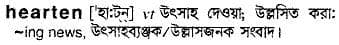 hearten ['হা:টন্] vt উৎসাহ দেওয়া; উল্লসিত করা:
~ing news, উৎসাহব্যঞ্জক/উল্লাসজনক সংবাদ।